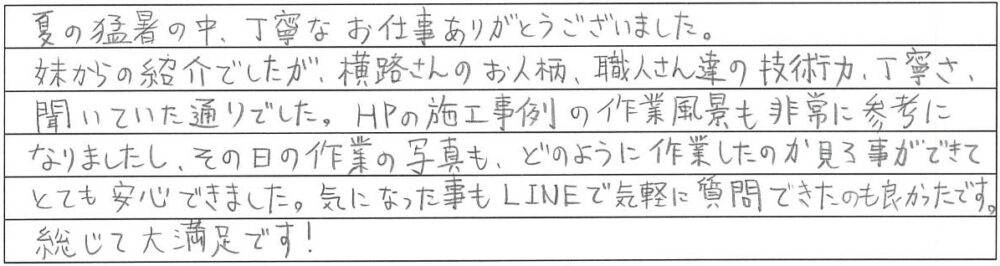 夏の猛暑の中、丁寧なお仕事ありがとうございました。
妹からの紹介でしたが、横路さんのお人柄、職人さん達の技術力、丁寧さ、
聞いていた通りでした。HPの施工事例の作業風景も非常に参考に
なりましたし、その日の作業の写真も、どのように作業したのか見る事ができて
とても安心できました。気になった事もLINEで気軽に質問できたのも良かったです。
総じて大満足です!